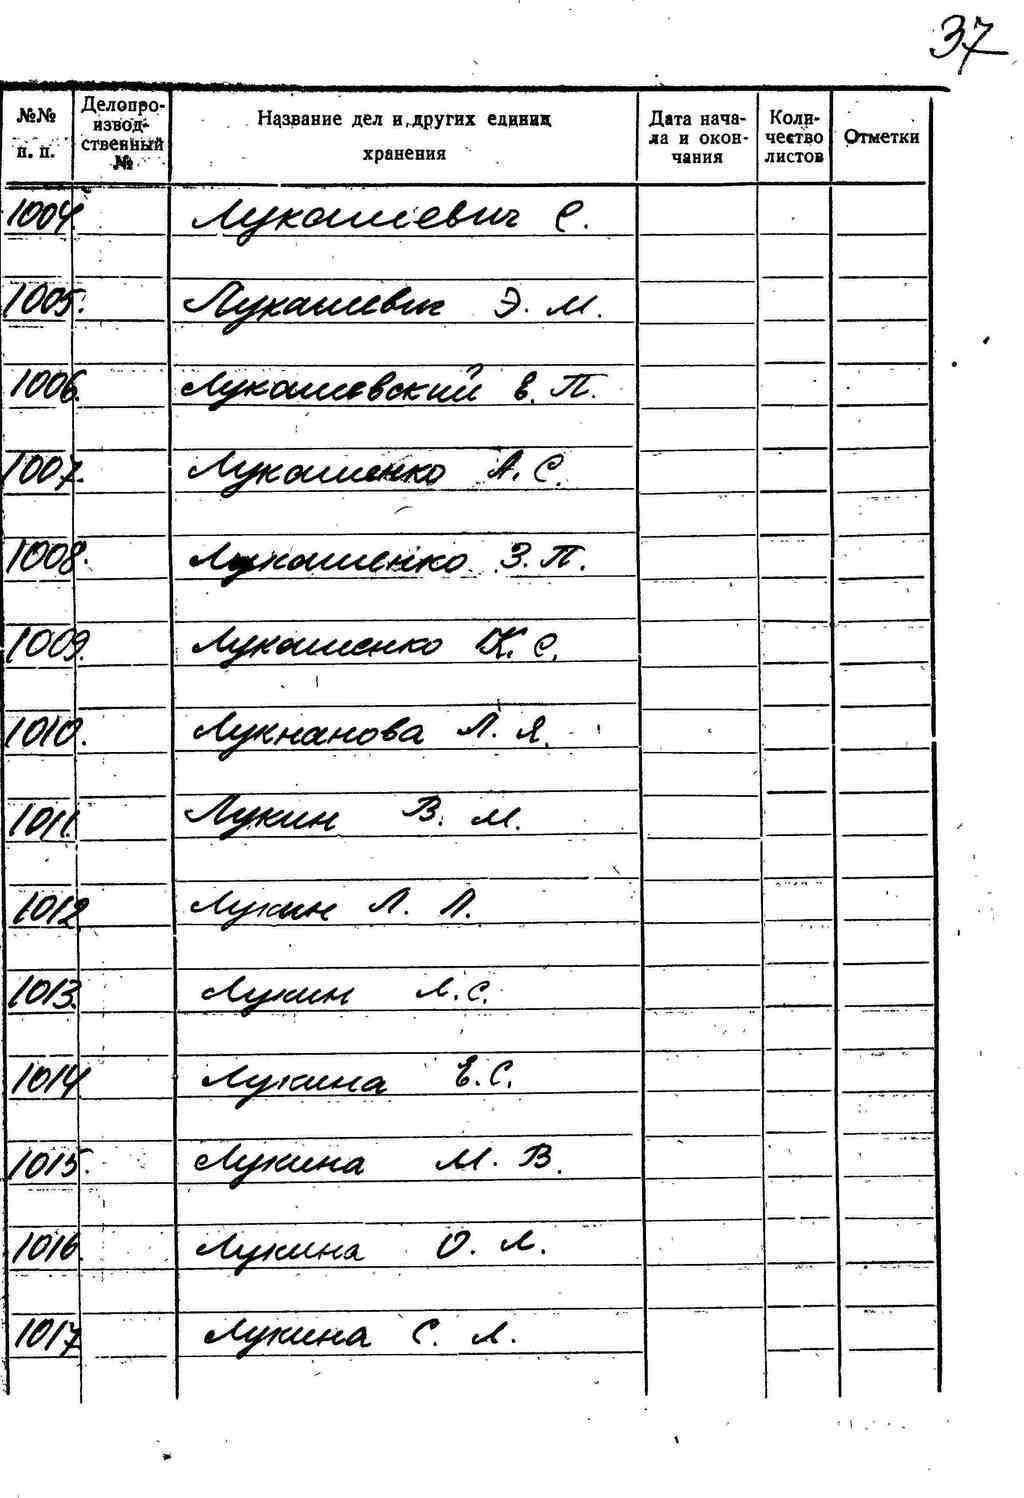 37
№№ п. п. Делопроизводственный № Название дел и других единиц хранения Дата начала и окончания Количество листов Отметки
1004. Лукашевич С.
1005. Лукашевич Э. М.
1006. Лукашевский Е. П.
1007. Лукашенко А. С.
1008. Лукашенко З. П.
1009. Лукашенко К. С.
1010. Лукнанова Л. Я.
1011. Лукин В. М.
1012 Лукин Л. Л.
1013. Лукин Л. С.
1014 Лукина Е. С.
1015. Лукина М. В.
1016. Лукина О. Л.
1017 Лукина С. Л.